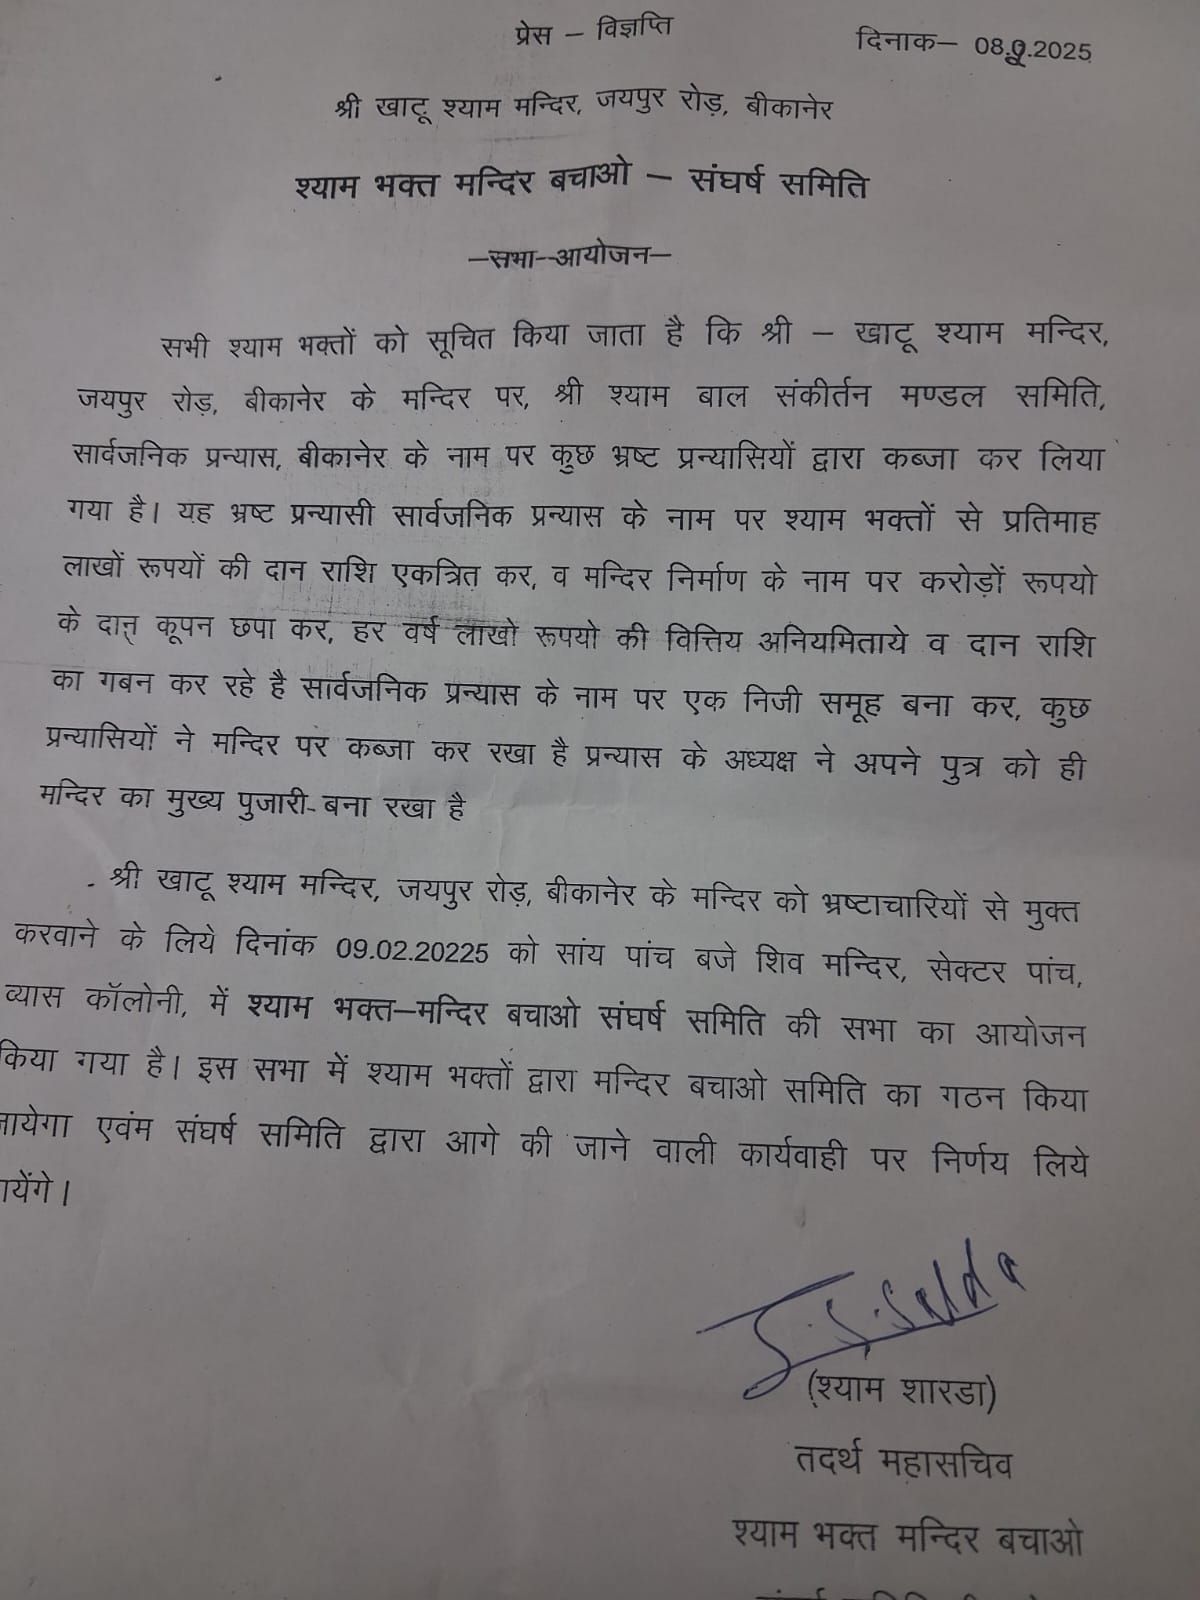 प्रेस – विज्ञप्ति
दिनाक– 08.2.2025
श्री खाटू श्याम मन्दिर, जयपुर रोड़, बीकानेर
श्याम भक्त मन्दिर बचाओ – संघर्ष समिति
–सभा–आयोजन–
सभी श्याम भक्तों को सूचित किया जाता है कि श्री – खाटू श्याम मन्दिर,
जयपुर रोड़, बीकानेर के मन्दिर पर, श्री श्याम बाल संकीर्तन मण्डल समिति,
सार्वजनिक प्रन्यास, बीकानेर के नाम पर कुछ भ्रष्ट प्रन्यासियों द्वारा कब्जा कर लिया
गया है। यह भ्रष्ट प्रन्यासी सार्वजनिक प्रन्यास के नाम पर श्याम भक्तों से प्रतिमाह
लाखों रूपयों की दान राशि एकत्रित कर, व मन्दिर निर्माण के नाम पर करोड़ों रूपयो
के दान कूपन छपा कर, हर वर्ष लाखो रूपयो की वित्तिय अनियमिताये व दान राशि
का गबन कर रहे है सार्वजनिक प्रन्यास के नाम पर एक निजी समूह बना कर, कुछ
प्रन्यासियों ने मन्दिर पर कब्जा कर रखा है प्रन्यास के अध्यक्ष ने अपने पुत्र को ही
मन्दिर का मुख्य पुजारी बना रखा है
श्री खाटू श्याम मन्दिर, जयपुर रोड़, बीकानेर के मन्दिर को भ्रष्टाचारियों से मुक्त
करवाने के लिये दिनांक 09.02.20225 को सांय पांच बजे शिव मन्दिर, सेक्टर पांच,
व्यास कॉलोनी, में श्याम भक्त–मन्दिर बचाओ संघर्ष समिति की सभा का आयोजन
किया गया है। इस सभा में श्याम भक्तों द्वारा मन्दिर बचाओ समिति का गठन किया
जायेगा एवंम संघर्ष समिति द्वारा आगे की जाने वाली कार्यवाही पर निर्णय लिये
येंगे।
(श्याम शारडा)
तदर्थ महासचिव
श्याम भक्त मन्दिर बचाओ